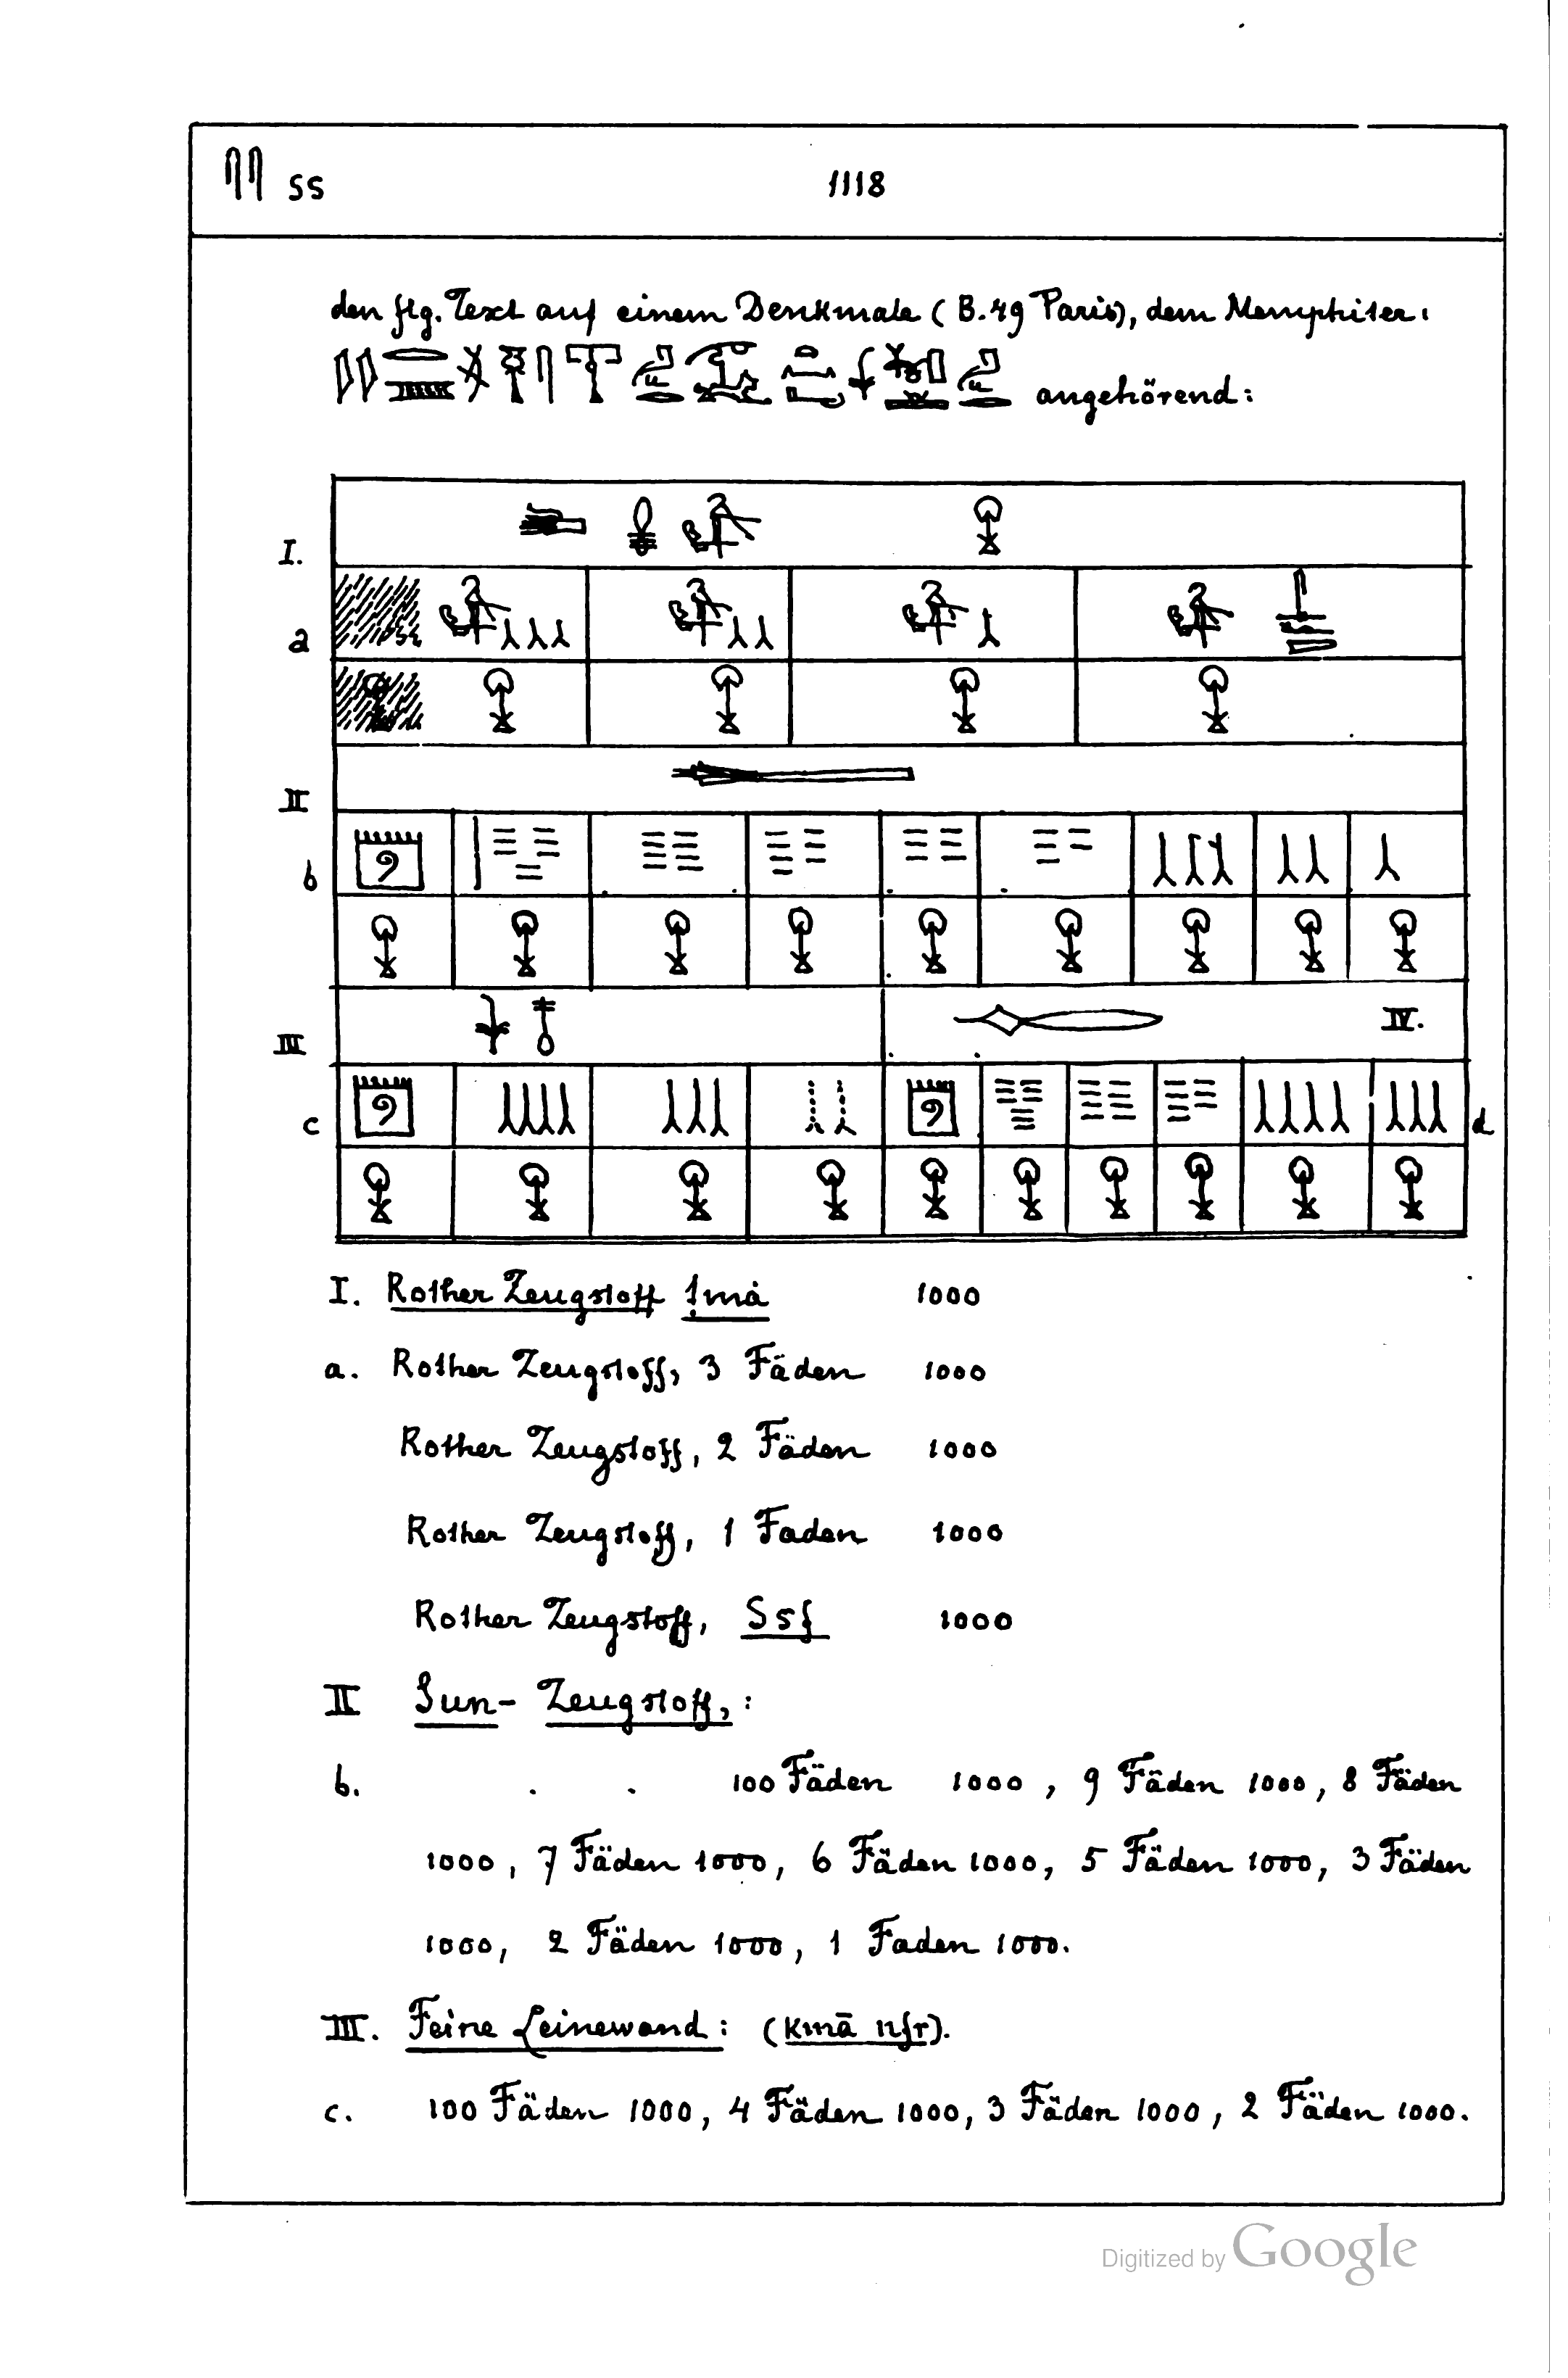 𓋴𓋴 ss 1118
den flg. Text auf einem Denkmale (B. 49 Paris), dem Memphiter:
angehörend:
I.
a
II
b
III IV.
c d
I. Rother Zeugstoff 1000
a. Rother Zeugstoff, 3 Fäden 1000
Rother Zeugstoff, 2 Fäden 1000
Rother Zeugstoff, 1 Faden 1000
Rother Zeugstoff, Ssf 1000
II Šun- Zeugstoff, :
b. . . 100 Fäden 1000, 9 Fäden 1000, 8 Fäden
1000, 7 Fäden 1000, 6 Fäden 1000, 5 Fäden 1000, 3 Fäden
1000, 2 Fäden 1000, 1 Faden 1000.
III. Feine Leinewand: (Kmā nfr).
c. 100 Fäden 1000, 4 Fäden 1000, 3 Fäden 1000, 2 Fäden 1000.
Digitized by Google